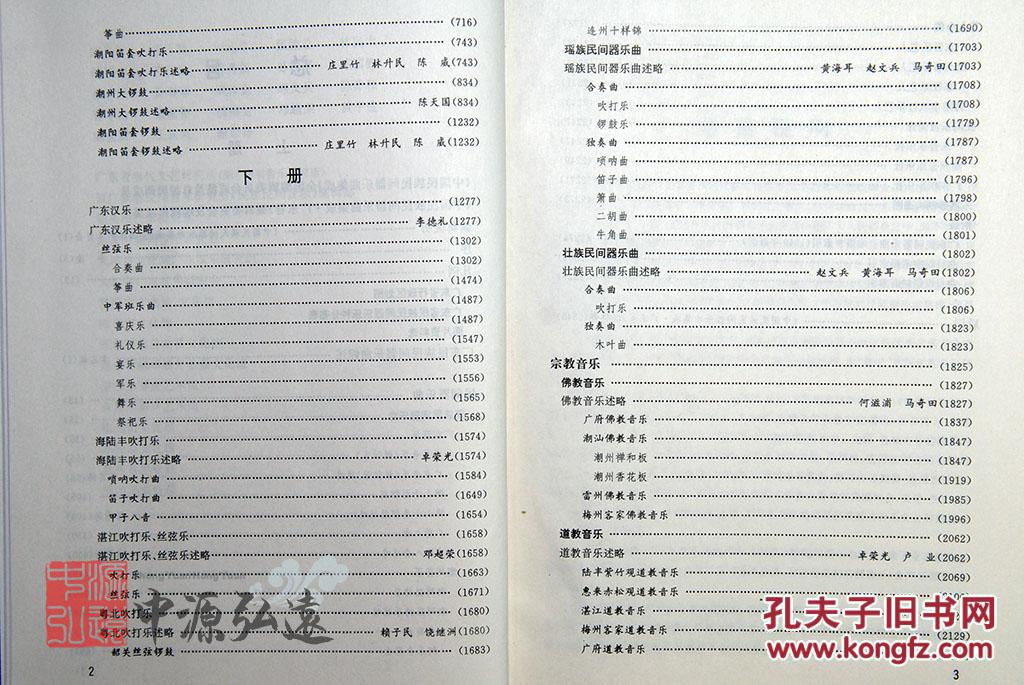 筝曲 (716)
潮阳笛套吹打乐 (743)
潮阳笛套吹打乐述略 庄里竹 林升民 陈 威(743)
潮州大锣鼓 (834)
潮州大锣鼓述略 陈天国(834)
潮阳笛套锣鼓 (1232)
潮阳笛套锣鼓述略 庄里竹 林升民 陈 威(1232)
下 册
广东汉乐 (1277)
广东汉乐述略 李德礼(1277)
丝弦乐 (1302)
合奏曲 (1302)
筝曲 (1474)
中军班乐曲 (1487)
喜庆乐 (1487)
礼仪乐 (1547)
宴乐 (1553)
军乐 (1556)
舞乐 (1565)
祭祀乐 (1568)
海陆丰吹打乐 (1574)
海陆丰吹打乐述略 卓荣光(1574)
唢呐吹打曲 (1584)
笛子吹打曲 (1649)
甲子八音 (1654)
湛江吹打乐、丝弦乐 (1658)
湛江吹打乐、丝弦乐述略 邓超荣(1658)
吹打乐 (1663)
丝弦乐 (1671)
粤北吹打乐 (1680)
粤北吹打乐述略 赖子民 饶继洲(1680)
韶关丝弦锣鼓 (1683)
2
连州十样锦 (1690)
瑶族民间器乐曲 (1703)
瑶族民间器乐曲述略 黄海耳 赵文兵 马奇田(1703)
合奏曲 (1708)
吹打乐 (1708)
锣鼓乐 (1779)
独奏曲 (1787)
唢呐曲 (1787)
笛子曲 (1796)
箫曲 (1798)
二胡曲 (1800)
牛角曲 (1801)
壮族民间器乐曲 (1802)
壮族民间器乐曲述略 赵文兵 黄海耳 马奇田(1802)
合奏曲 (1806)
吹打乐 (1806)
独奏曲 (1823)
木叶曲 (1823)
宗教音乐 (1825)
佛教音乐 (1827)
佛教音乐述略 何滋浦 马奇田(1827)
广府佛教音乐 (1837)
潮汕佛教音乐 (1847)
潮州禅和板 (1847)
潮州香花板 (1919)
雷州佛教音乐 (1985)
梅州客家佛教音乐 (1996)
道教音乐 (2062)
道教音乐述略 卓荣光 卢 业(2062)
陆丰紫竹观道教音乐 (2069)
惠来赤松观道教音乐
湛江道教音乐
梅州客家道教音乐 (2129)
广府道教音乐
3
中源弘远
中源弘遠
孔夫子旧书网
www.kongfz.com